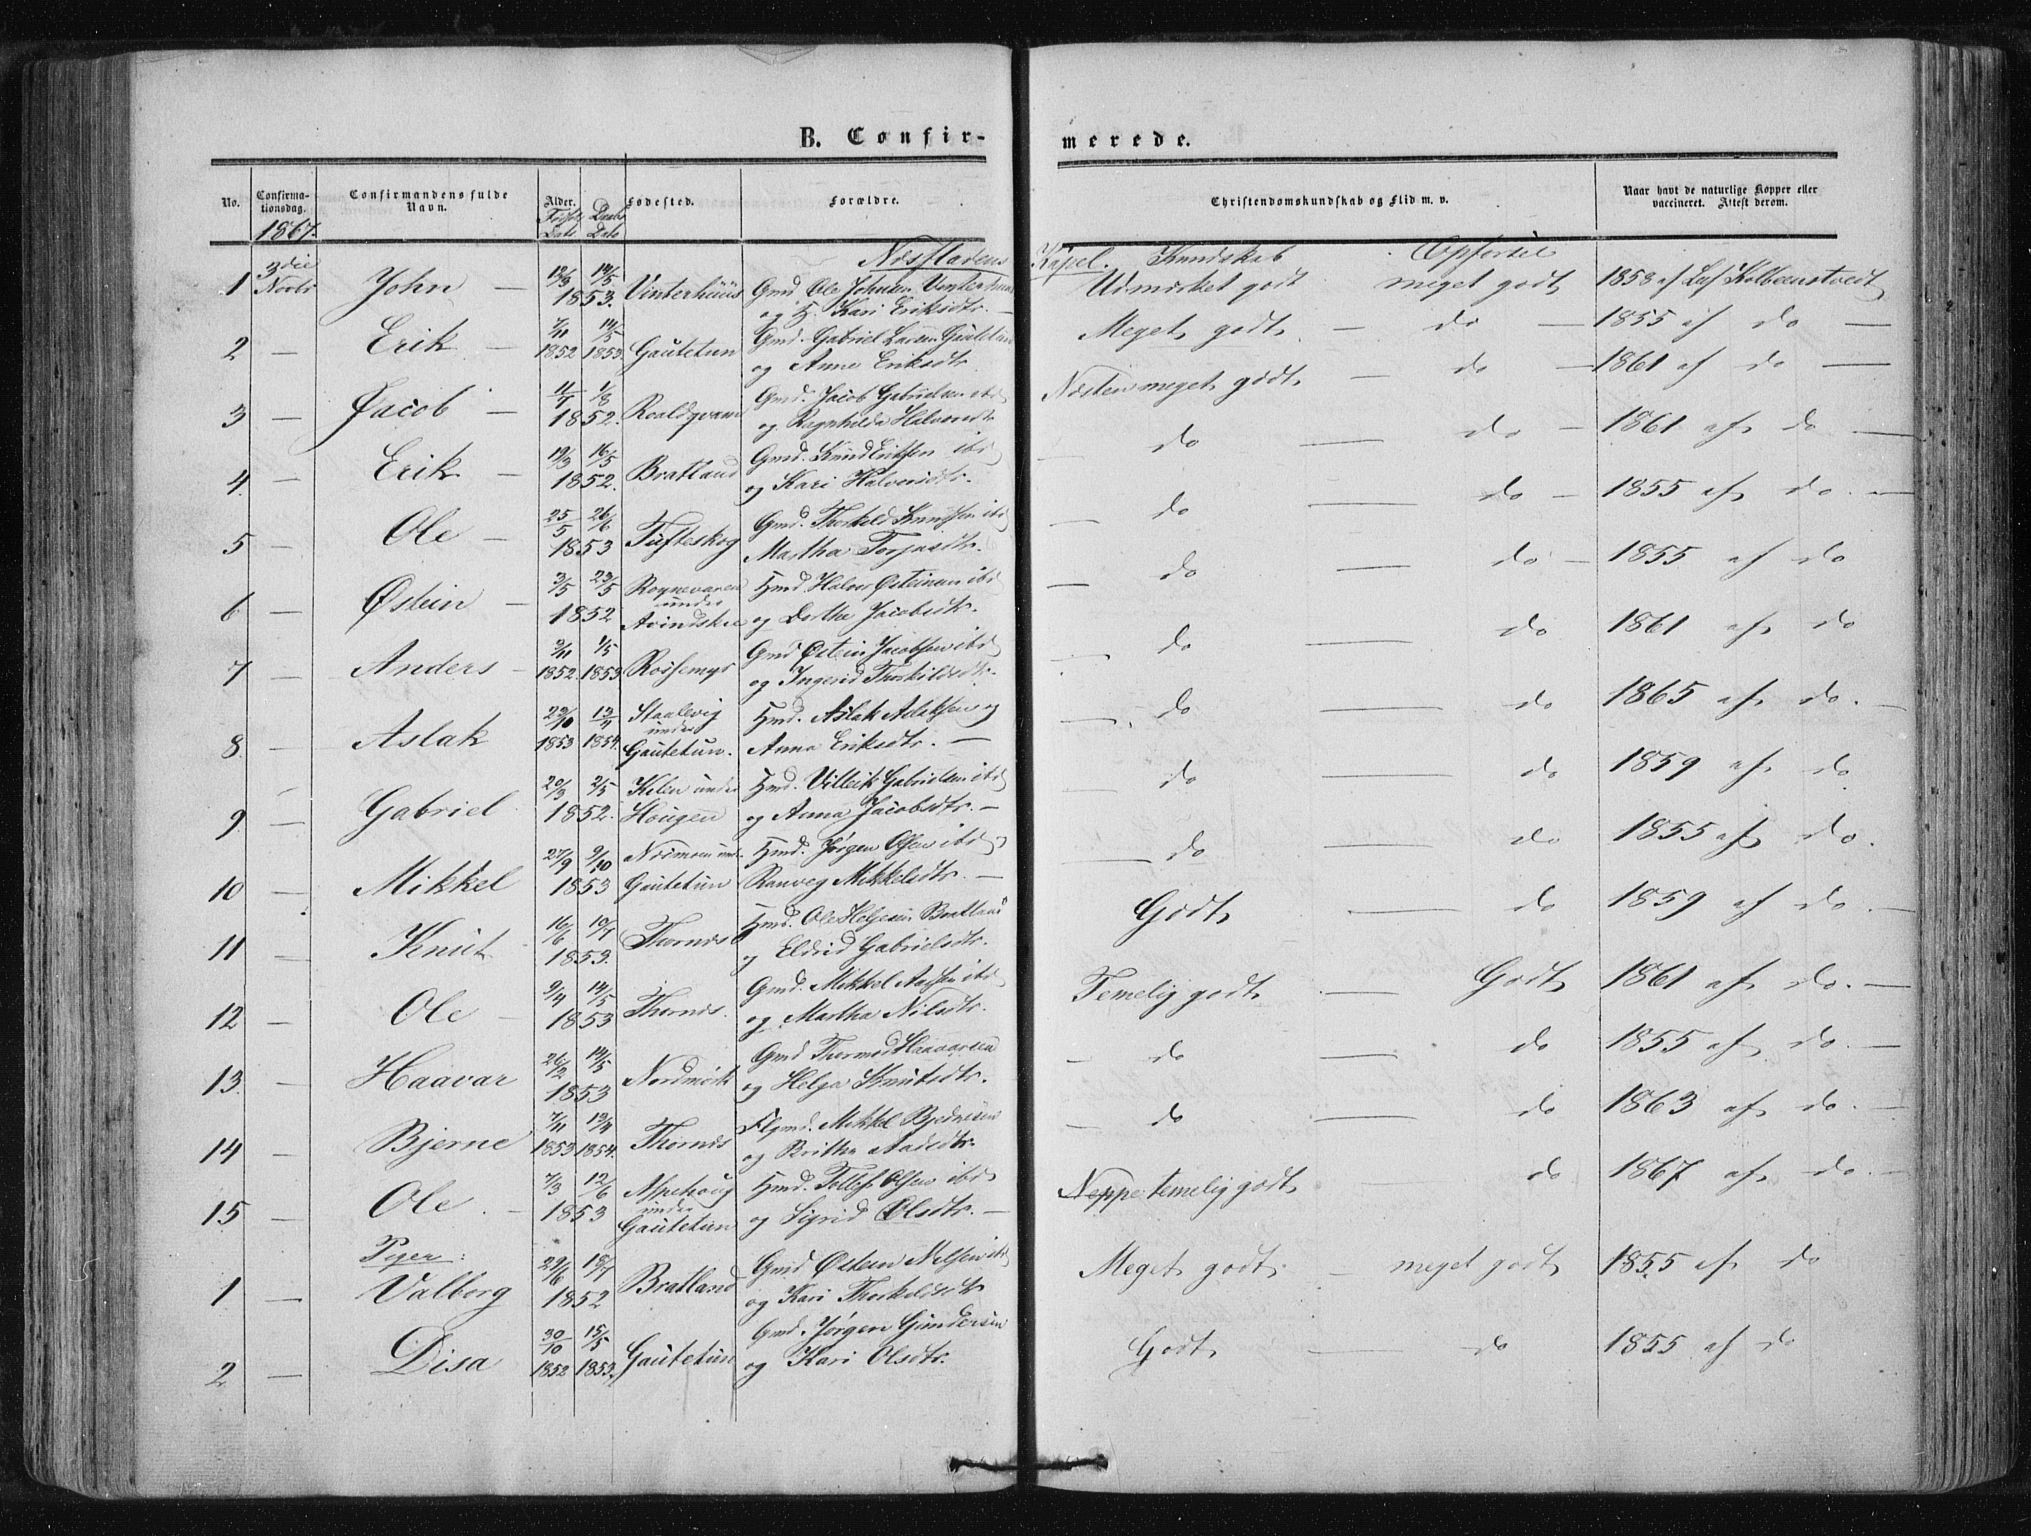 B. Confir-
merede.
No.
Confirma-
tionsdag.
1867.
Confirmandens fulde
Navn.
Alder.
Fødsels
Dato
Daabs
Dato
Fødested.
Forældre.
Christendomskundskab og Flid m. v.
Naar havt de naturlige Kopper eller
vaccineret. Attest derom.
Næsfladens Kapel. Kundskab Opførsel
1 3die Novbr John — 12/3 14/5 1853. Vinterhuus Gmd Ole Johnsen Vinterhuus og H. Kari Eriksdtr. — Udmærket godt meget godt 1853 af Leif Kolbeinstvedt
2 — Erik — 7/11 1852 14/5 1853. Gautetun Gmd. Gabriel Larsen Gautetun og Anne Eriksdtr. Meget godt — do — 1855 af do —
3 — Jacob — 11/7 1/8 1852. Roaldqvam Gmd. Jacob Gabrielsen ibd og Ragnhilda Halvorsdtr Næsten meget godt — do — 1861 af do —
4. — Erik — 12/3 16/5 1852. Bratland Gmd. Knud Eriksen ibd og Kari Halvorsdtr. — do — do — 1861 af do —
5 — Ole — 25/5 26/6 1853 Tufteskog Gmd. Thorkild Knudsen ibd Martha Torjusdtr. — do — do — 1855 af do. —
6 — Østein — 3/5 23/5 1852 Rognevaren under Avindskei Hmd. Halvor Østeinsen ibd og Dorthe Jacobsdtr. — do — do — 1855 af do
7 — Anders — 2/11 1852. 1/5 1853 Rossemyr Gmd Østein Jacobsen ibd og Ingerid Thorkildsdtr. — do — do 1861 af do
8 — Aslak 23/10 1853 13/4 1854. Staalevig under Gautetun. Hmd. Aslak Aslaksen og Anna Eriksdtr. — — do — do 1865 af do. —
9 — Gabriel 20/3 2/5 1852. Kilen under Hougen Hmd. Villeik Gabrielsen ibd og Anna Jacobsdtr. — do — do 1859 af do
10 — Mikkel 27/9 9/10 1853 Næsmoen und. Gautetun Hmd. Jørgen Olsen ibd og Ranveg Mikkelsdtr. — — do — do 1855 af do.
11 — Knut 16/6 10/7 1853. Thornæs Hmd. Ole Helgesen Bratland og Eldrid Gabrielsdtr. Godt — do 1859 af do. —
12 — Ole — 9/4 14/5 1853 Thornæs. Gmd. Mikkel Aadsen ibd og Martha Nilsdtr. Temelig godt — Godt 1861 af do. —
13. — Haavar 26/2 14/5 1853 Nordmørk Gmd Thormod Haavarsen og Helga Knutsdtr. — do — do 1855 af do. —
14 — Bjerne 7/11 1853 13/4 1854. Thornæs Flgmd. Mikkel Bjernesen og Britha Aadsdtr. — do — do 1863 af do. —
15 — Ole. — 7/3 12/6 1853 Aspehaug under Gautetun Hmd. Tollef Olsen ibd og Sigrid Olsdtr. — Neppe temelig godt do 1867 af do. —
Piger:
1 — Valborg 29/6 18/7 1852 Bratland Gmd Østein Nilsen ibd og Kari Thorkildsdtr Meget godt — meget godt 1855 af do
2 — Disa 30/10 1852 15/5 1853. Gautetun Gmd. Jørgen Gundersen og Kari Olsdtr. Godt — do 1855 af do